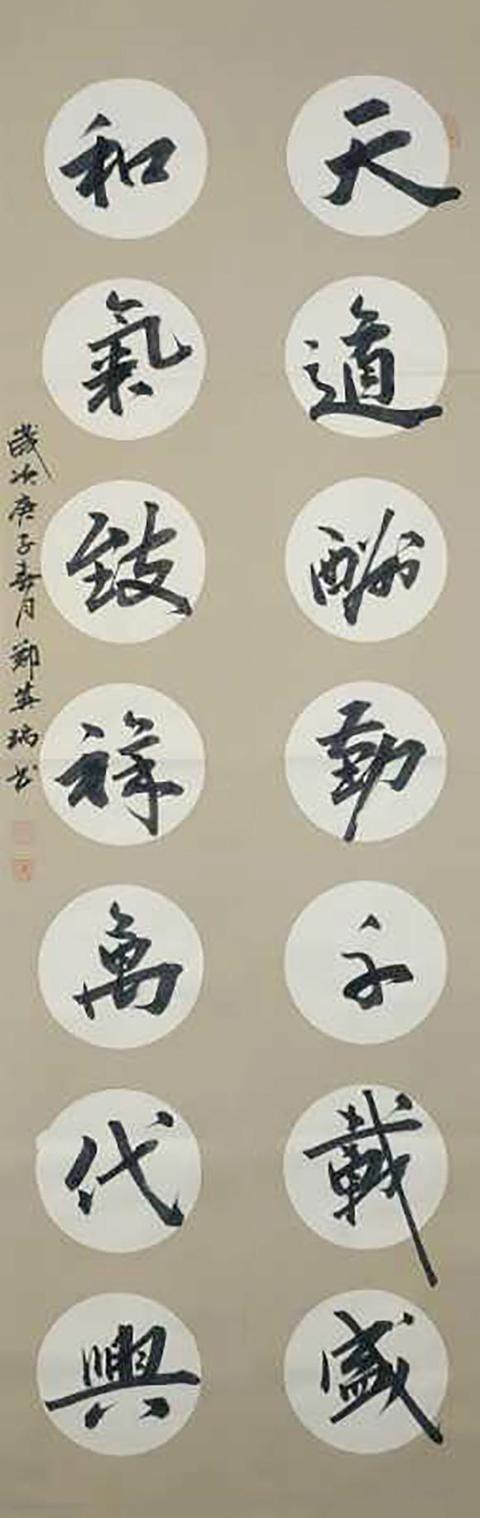 天道酬勤千載盛
和氣致祥萬代興
歲次庚子春月鄭英瑞書